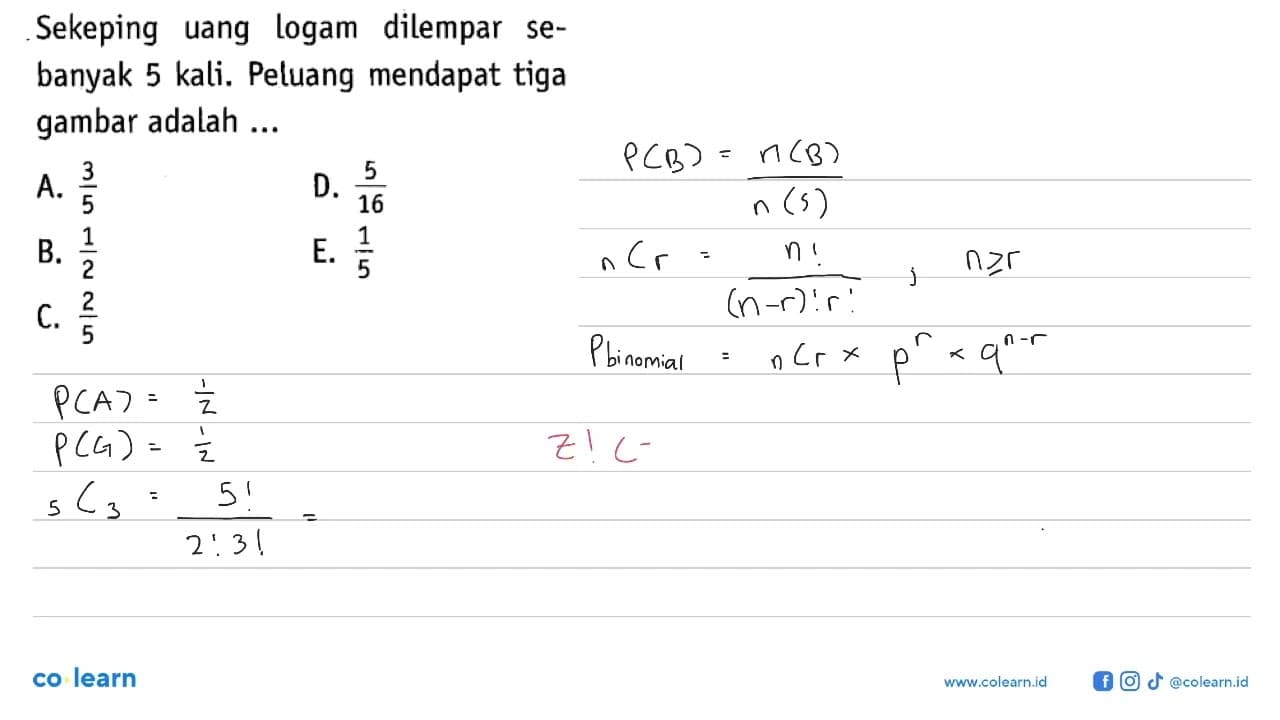 Sekeping uang logam dilempar se-
banyak 5 kali. Peluang mendapat tiga
gambar adalah ...
A. 3/5
B. 1/2
C. 2/5
D. 5/16
E. 1/5
P(B) = n(B)/n(S)
nCr = n!/(n-r)!r! , n≥r
Pbinomial = nCr × p^r × q^n-r
P(A) = 1/2
P(G) = 1/2
5C3 = 5!/2!3! =
2! (-
co learn
www.colearn.id
@colearn.id